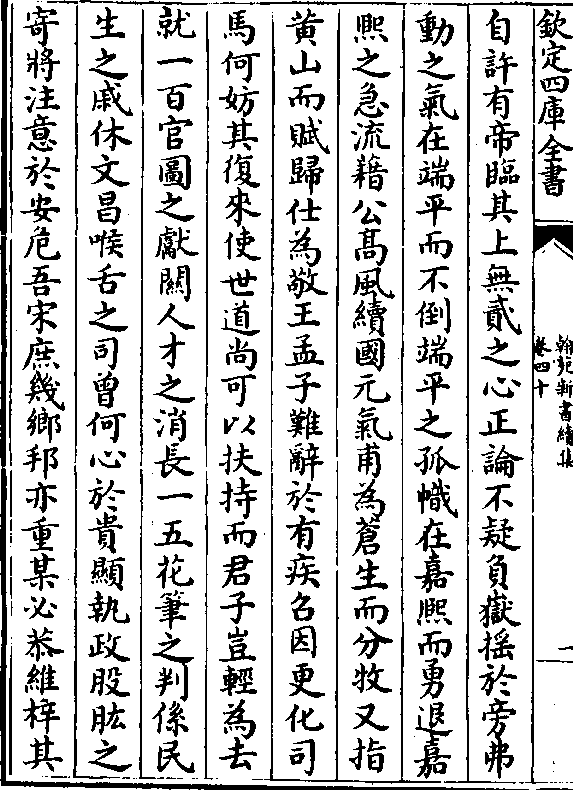 欽定四庫全書
翰苑新書續集
卷四十
自許有帝臨其上無貳之心正論不疑負嶽揺於旁弗
動之氣在端平而不倒端平之孤幟在嘉熙而勇退嘉
熙之急流藉公髙風續國元氣甫為蒼生而分牧又指
黄山而賦歸仕為敬王孟子難辭於有疾召因更化司
馬何妨其復來使世道尚可以扶持而君子豈輕為去
就一百官圖之獻闗人才之消長一五花筆之判係民
生之戚休文昌喉舌之司曾何心於貴顯執政股肱之
寄將注意於安危吾宋庶幾鄉邦亦重某必恭維梓其